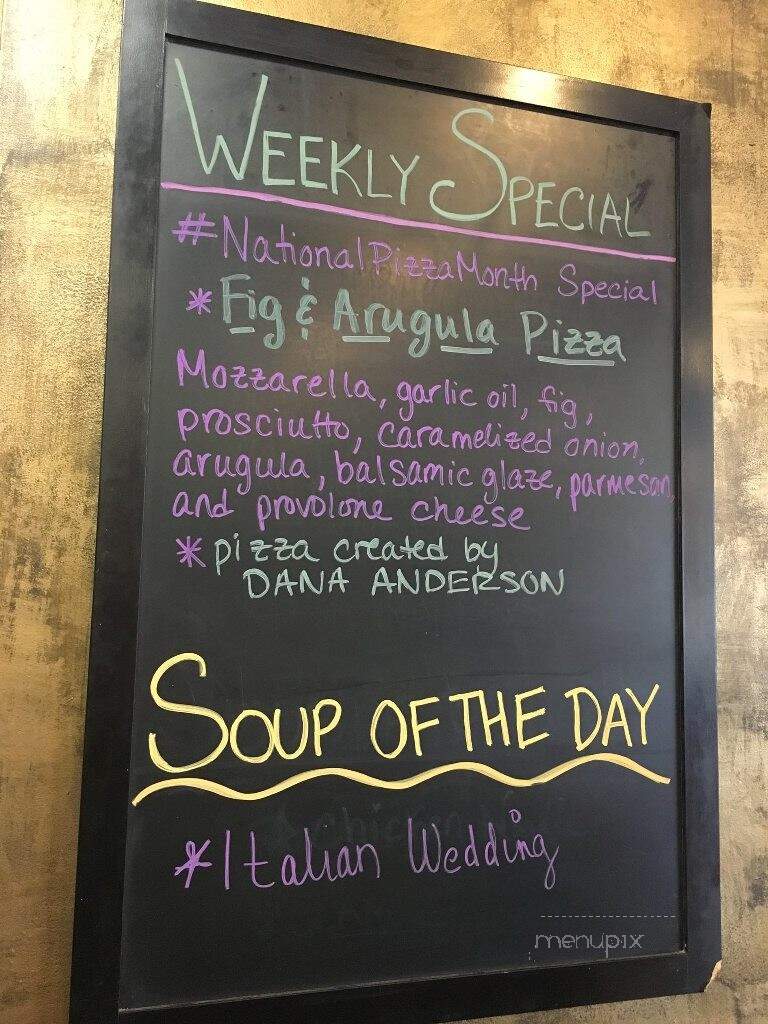 WEEKLY SPECIAL
#NationalPizzaMonth Special
*Fig & Arugula Pizza
Mozzarella, garlic oil, fig,
prosciutto, caramelized onion,
arugula, balsamic glaze, parmesan
and provolone cheese
*pizza created by
DANA ANDERSON
SOUP OF THE DAY
*Italian Wedding
menupix